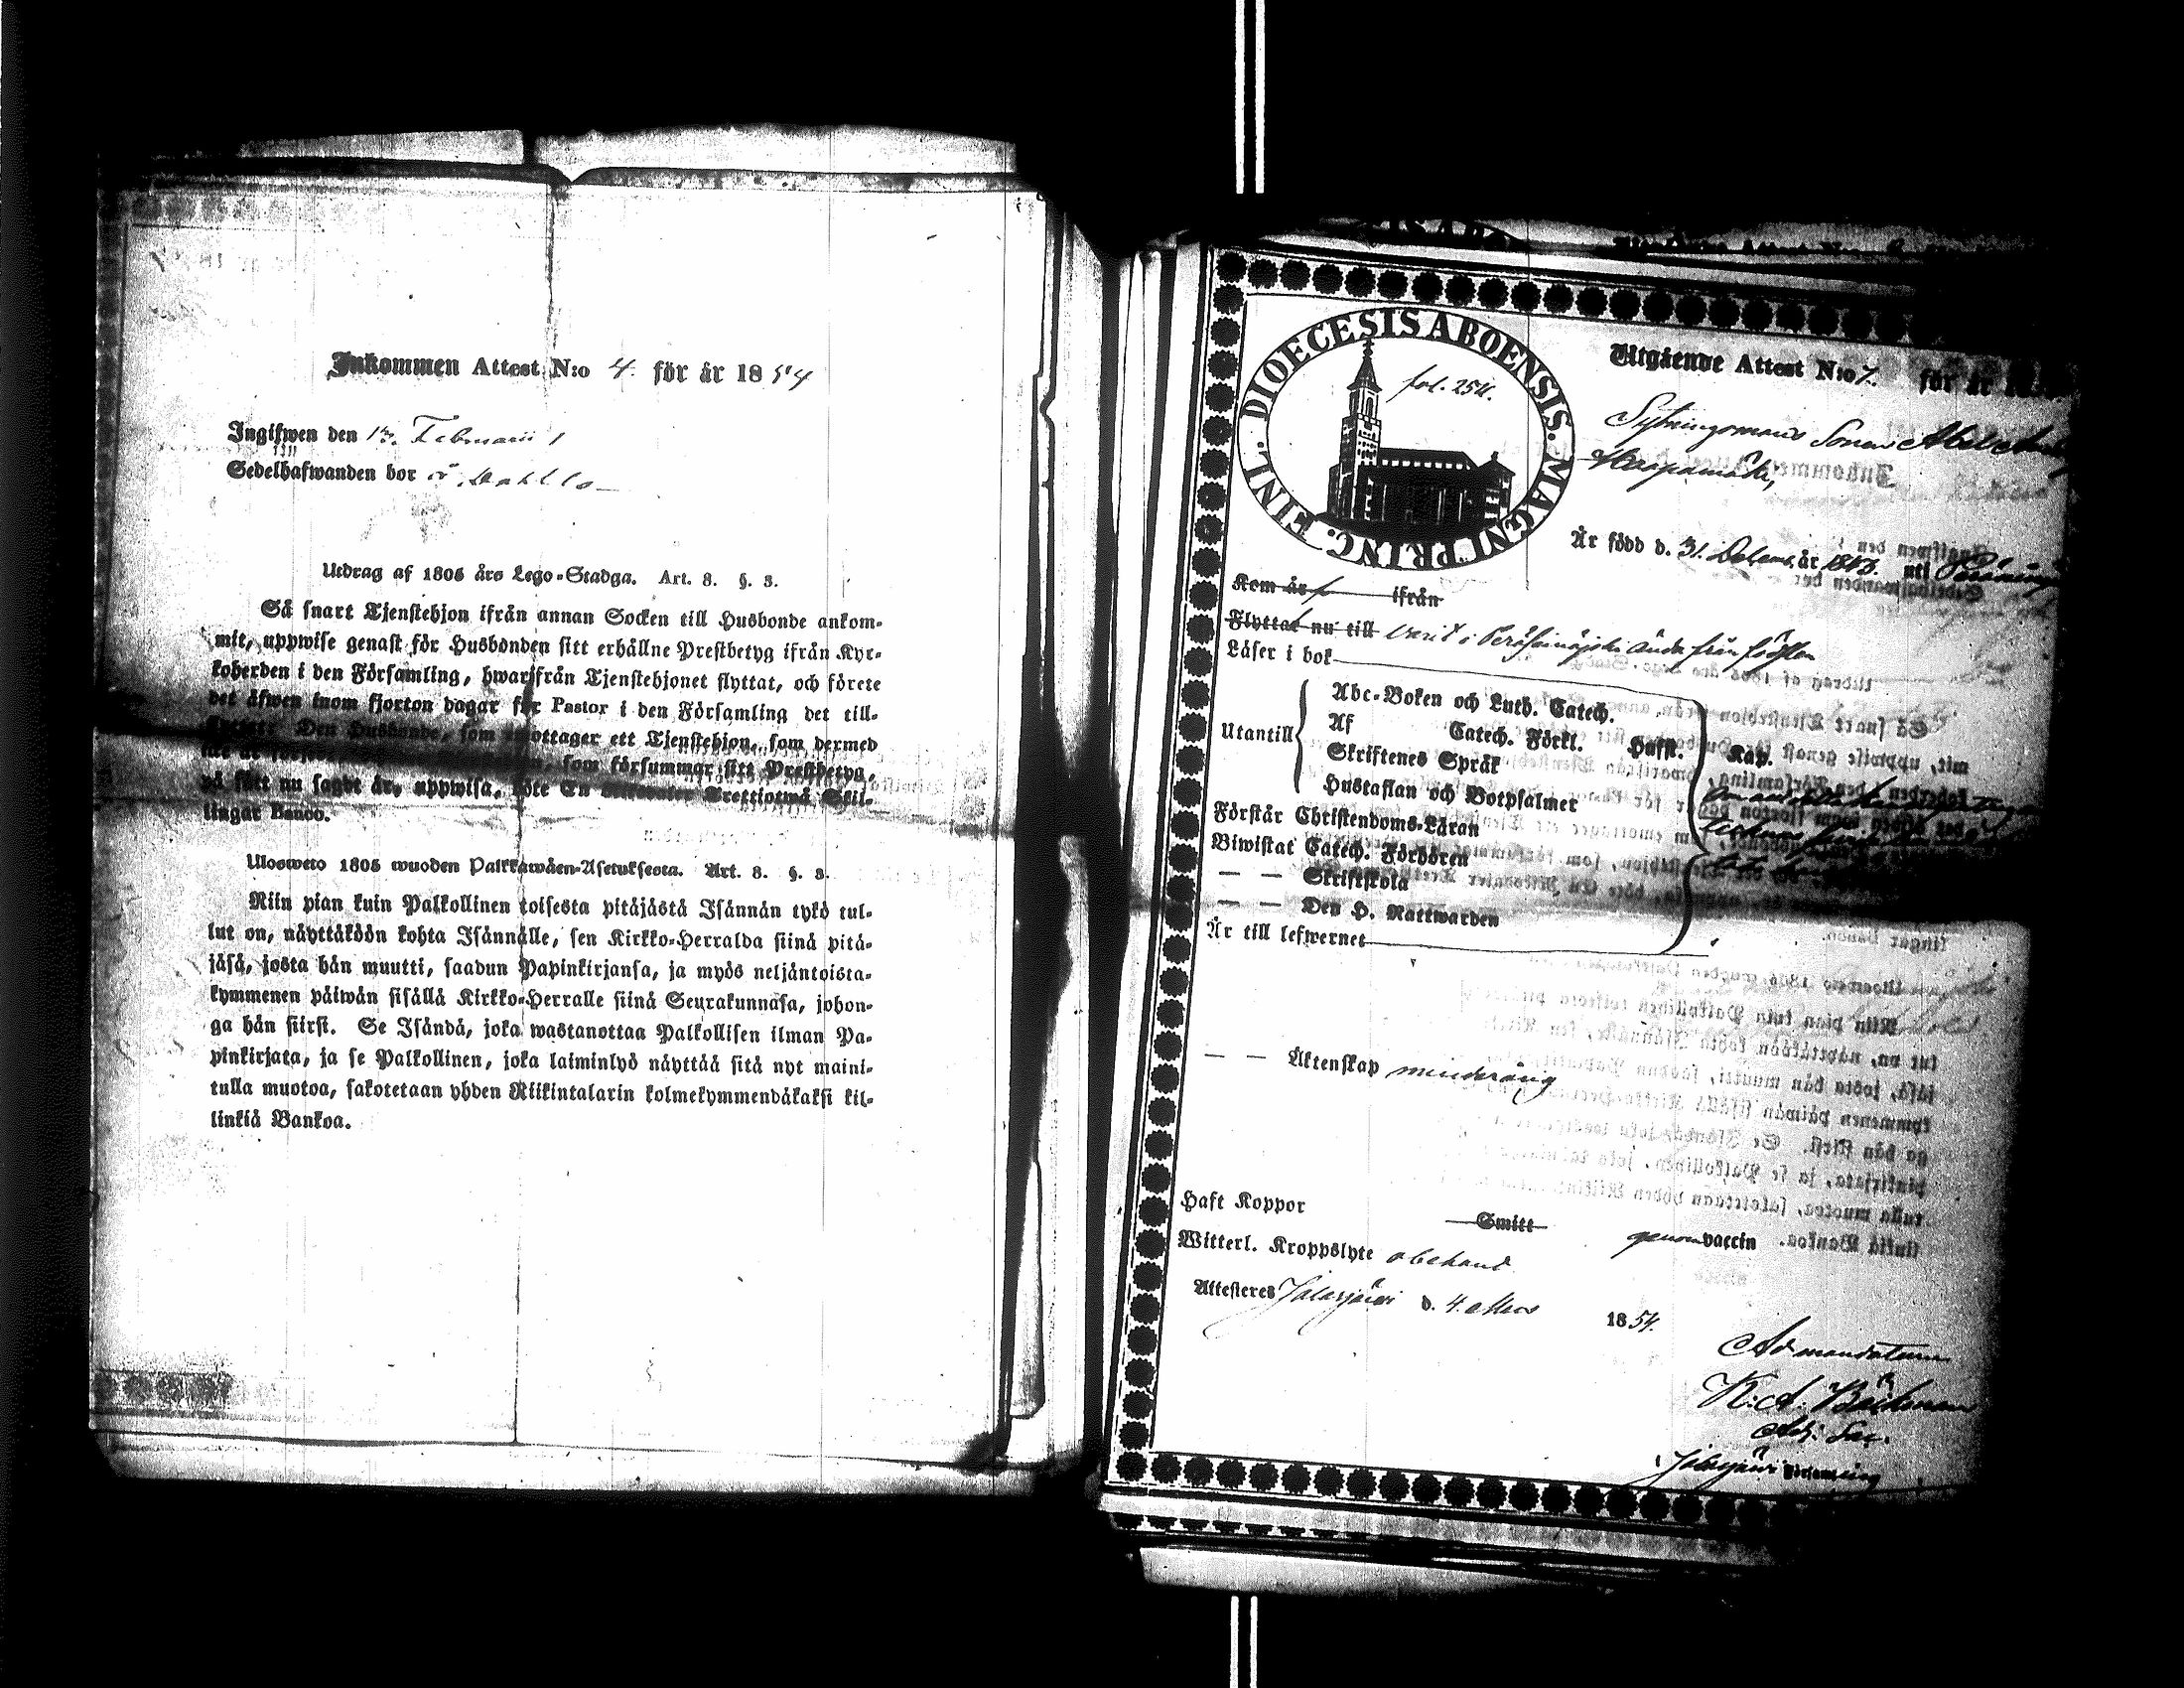 Inkommen Attest N:o 4. för år 1854
Ingifwen den 13. Februarii
Sedelhafwanden bor
Utdrag af 1805 års Lego-Stadga. Art. 8. §. 3.
Så snart Tjenstehjon ifrån annan Socken till Husbonde ankom-
mit, uppwise genast för Husbonden sitt erhållne Prestbetyg ifrån Kyr-
koherden i den Församling, hwarifrån Tjenstehjonet flyttat, och förete
det äfwen inom fjorton dagar för Pastor i den Församling det till-
Den Husbonde, som emottager ett Tjenstehjon, som dermed
som försummar sitt Prestbetyg,
på sätt nu sagdt är, uppwisa, böte En Trettiotwå Skil-
lingar Banco.
Ulosweto 1805 wuoden Palkkawäen-Asetuksesta. Art. 8. §. 3.
Niin pian kuin Palkollinen toisesta pitäjästä Isännän tykö tul-
lut on, näyttäköön kohta Isännälle, sen Kirkko-Herralda siinä pitä-
jäsä, josta hän muutti, saadun Papinkirjansa, ja myös neljäntoista-
kymmenen päiwän sisällä Kirkko-Herralle siinä Seurakunnasa, johon-
ga hän siirsi. Se Isändä, joka wastanottaa Palkollisen ilman Pa-
pinkirjata, ja se Palkollinen, joka laiminlyö näyttää sitä nyt maini-
tulla muotoa, sakotetaan yhden Riikintalarin kolmekymmendäkaksi kil-
linkiä Bankoa.
DIOECESIS ABOENSIS. MAGNI PRINC. FINL.
fol. 254.
Utgående Attest N:o 7. för år
Sytningsmans Sonen Abel
Haapamäki,
Är född d. 31. år 1843. uti
Kom år ifrån
Flyttat nu till varit i Peräseinäjoki ända från födseln
Läser i bok
Utantill
Abc-Boken och Luth. Catech.
Af Catech. Förkl. Hufst. Kap.
Skriftenes Språk
Hustaflan och Botpsalmer
Förstår Christendoms-Läran
Biwistat Catech. Förhören
— — Skriftskola
— — Den H. Nattwarden
Är till lefwernet
— — Äktenskap minderårig
Haft Koppor Smitt genom vaccin
Witterl. Kroppslyte obekant
Attesteres Jalasjärvi d. 4. Mars 1854.
Ad mandatum
K. A. Bäckman
Adj. Sac.
Jalasjärvi Församling